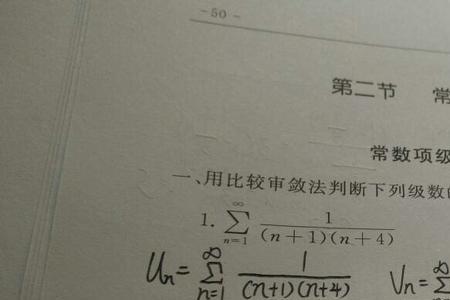 -50-
第二节 常
常数项级
一、用比较审敛法判断下列级数的
1. ∞∑n=1 1/((n+1)(n+4))
Un= ∞∑n=1 1/((n+1)(n+4)) Vn= ∞∑